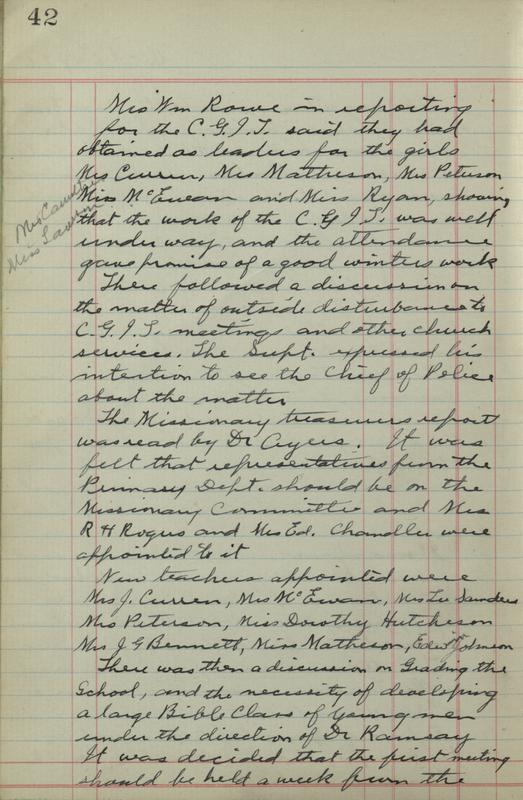 42
Mrs Wm Rowe in reporting
for the C.G.I.T. said they had
obtained as leaders for the girls
Mrs Curren, Mrs Matheson, Mrs Peterson
Miss McEwan and Miss Ryan, showing
that the work of the C.G.I.T. was well
under way, and the attendance
gave promise of a good winters work
There followed a discussion on
the matter of outside disturbance to
C.G.I.T. meetings and other church
services. The Supt. expressed his
intention to see the Chief of Police
about the matter
The Missionary treasurers report
was read by Dr Ayers. It was
felt that representatives from the
Primary Dept. should be on the
Missionary Committee and Mrs
R H Rogers and Mrs Ed. Chandler were
appointed to it
New teachers appointed were
Mrs J. Curren, Mrs McEwan, Mrs Lu Saunders
Mrs Peterson, Miss Dorothy Hutcheson
Mrs J G Bennett, Miss Matheson, Johnson
There was then a discussion on Grading the
School, and the necessity of developing
a large Bible Class of young men
under the direction of Dr Ramsay
It was decided that the first meeting
should be held a week from the